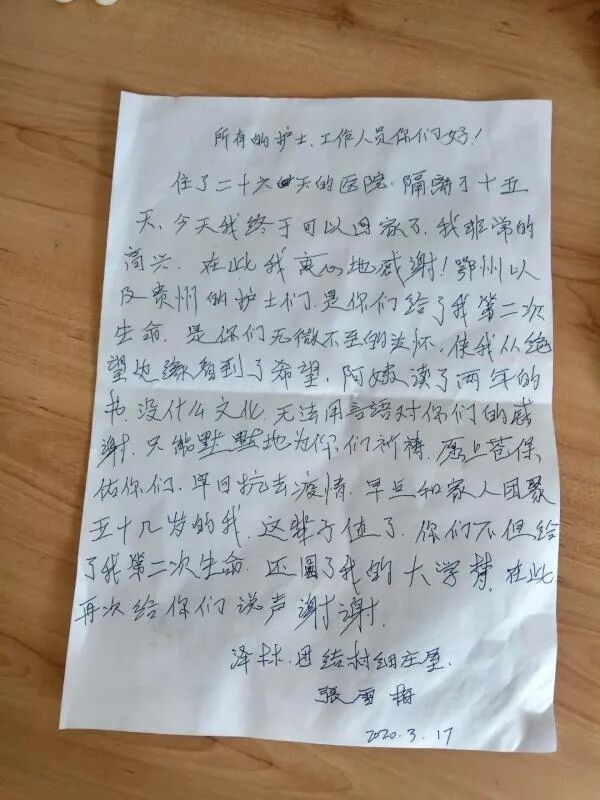 所有的护士、工作人员你们好！
住了二十六天的医院.隔离了十五
天、今天我终于可以回家了.我非常的
高兴.在此我衷心地感谢！鄂州以
及贵州的护士们.是你们给了我第二次
生命.是你们无微不至的关怀,使我从绝
望边缘看到了希望.阿姨读了两年的
书.没什么文化.无法用言语对你们的感
谢.只能默默地为你们祈祷.愿上苍保
佑你们.早日抗去疫情.早旦和家人团聚
五十几岁的我.这辈子值了.你们不但给
了我第二次生命.还圆了我的大学梦.在此
再次给你们说声谢谢.
泽林.团结村细庄屋.
張雪梅
2020.3.17